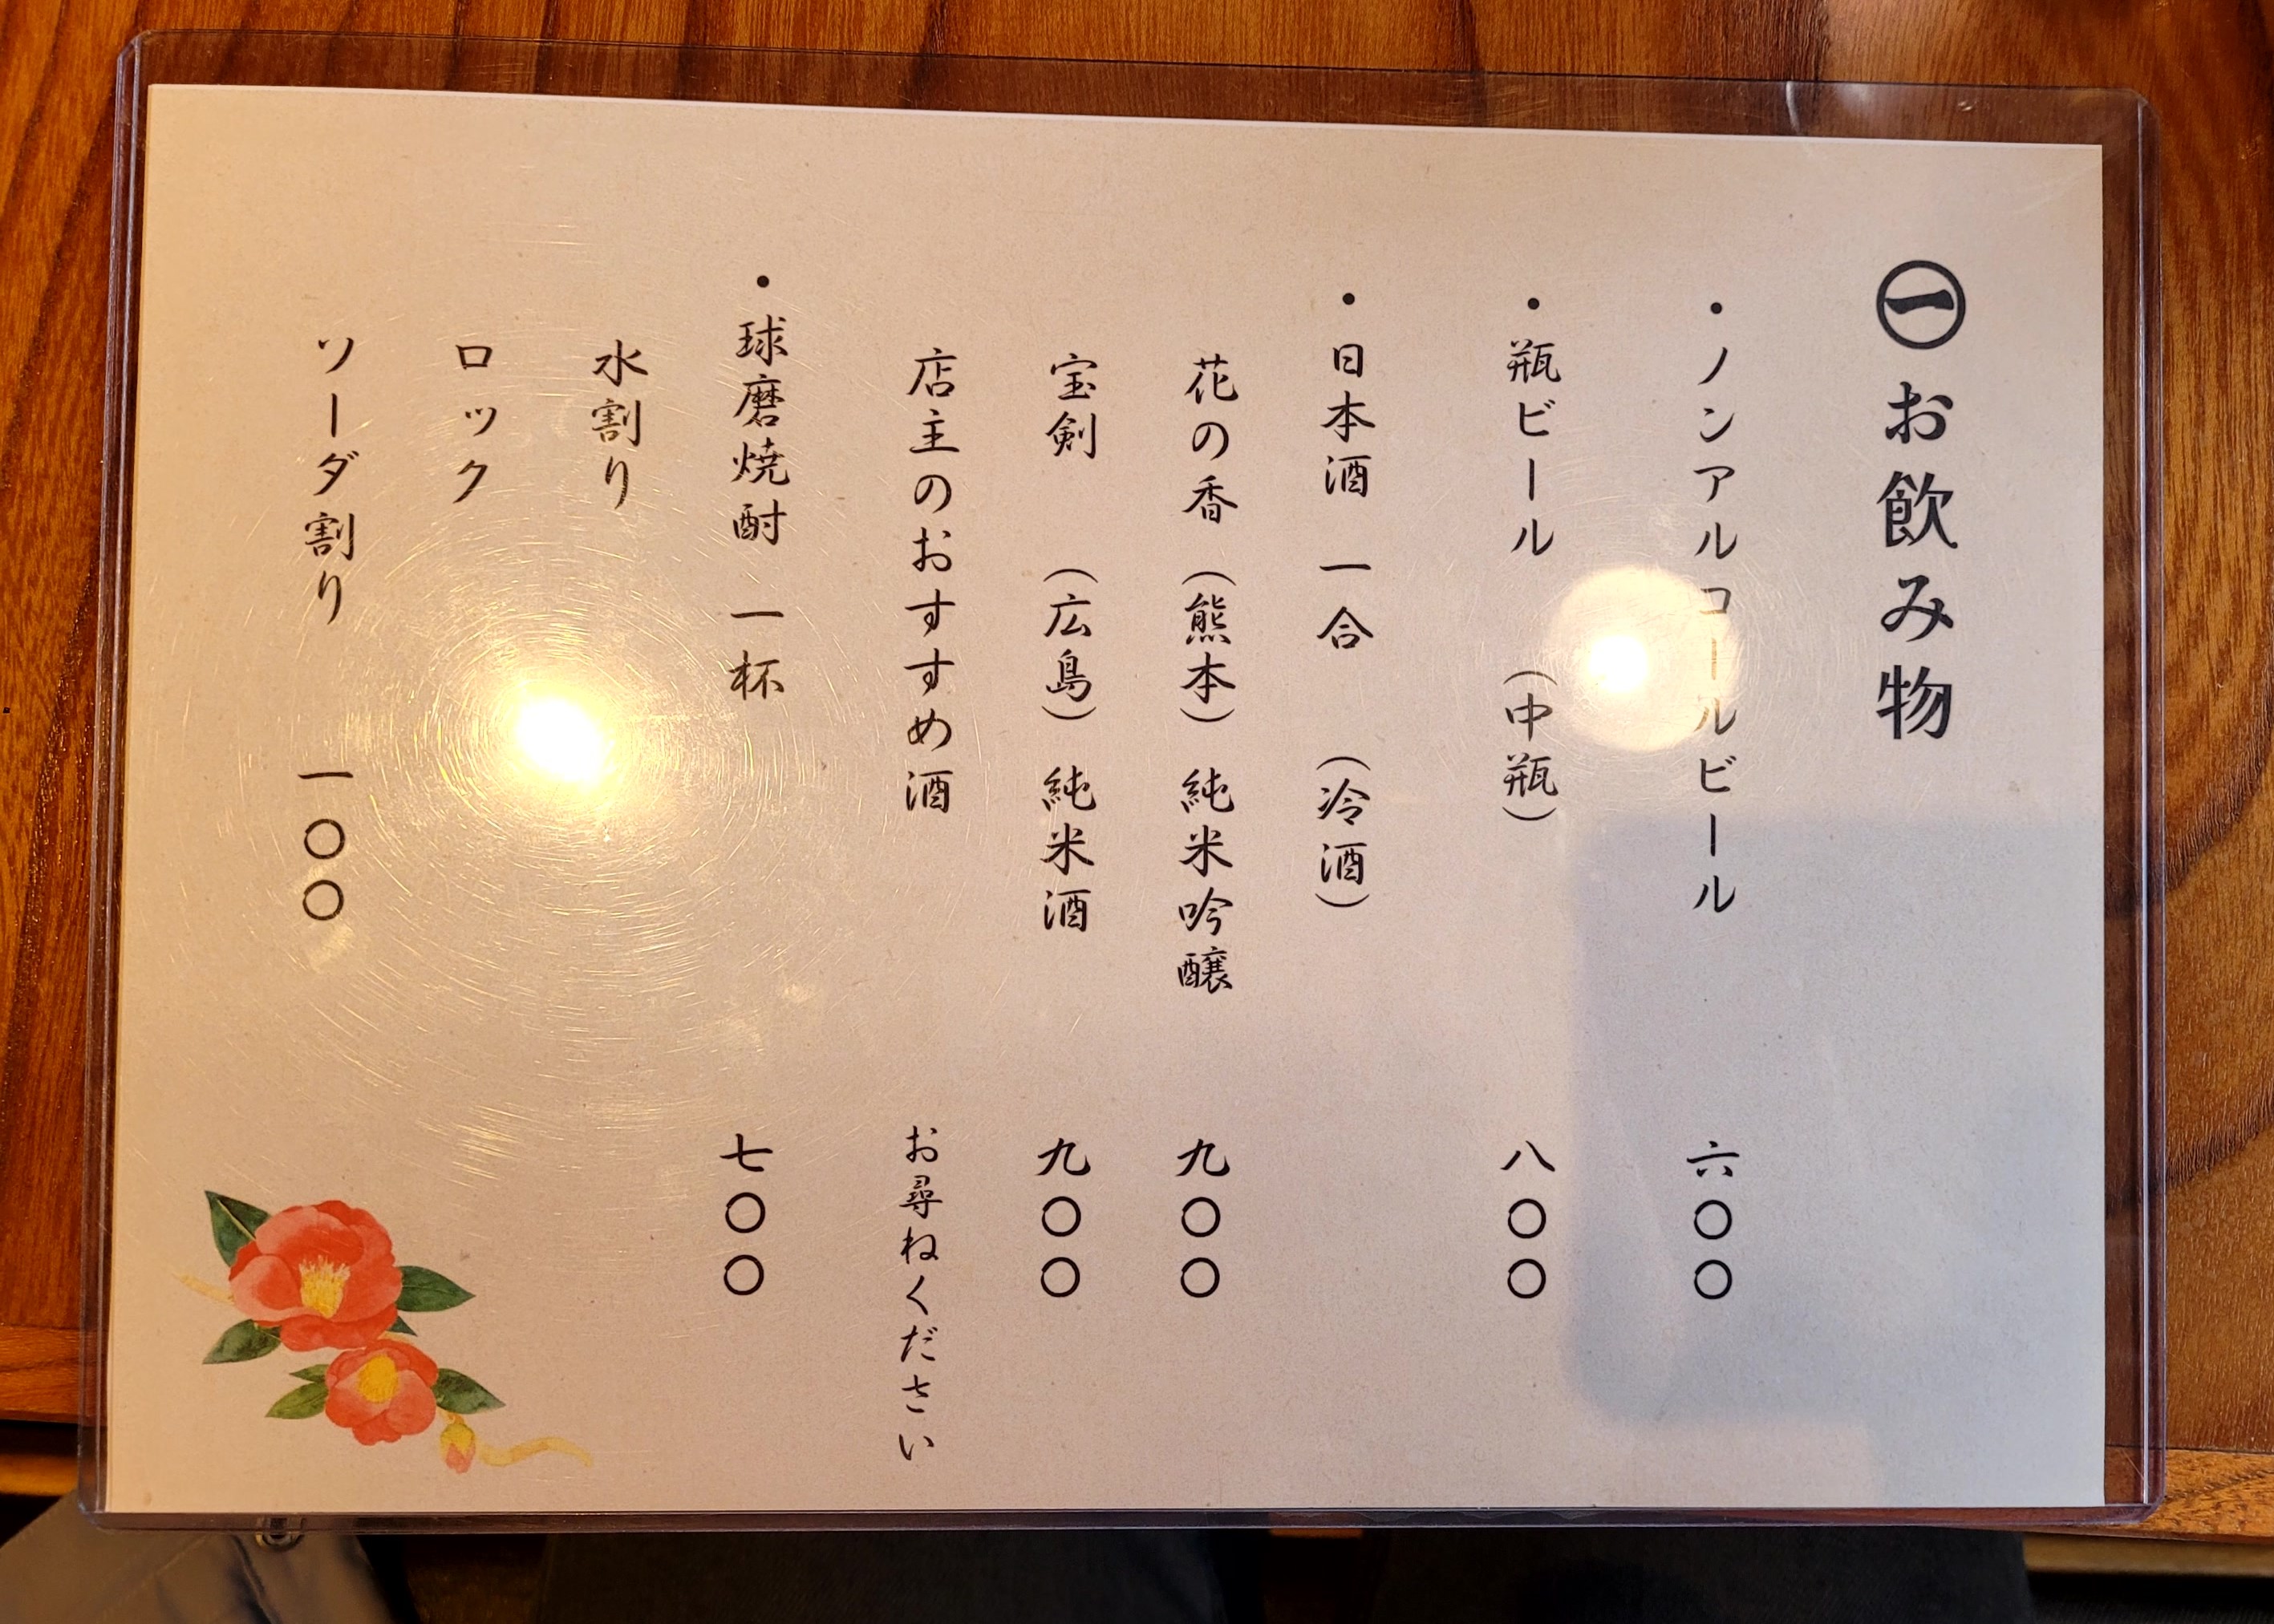 ㊀お飲み物
・ノンアルコールビール 六〇〇
・瓶ビール （中瓶） 八〇〇
・日本酒 一合 （冷酒）
花の香 （熊本） 純米吟醸 九〇〇
宝剣 （広島） 純米酒 九〇〇
店主のおすすめ酒 お尋ねください
・球磨焼酎 一杯 七〇〇
水割り
ロック
ソーダ割り 一〇〇